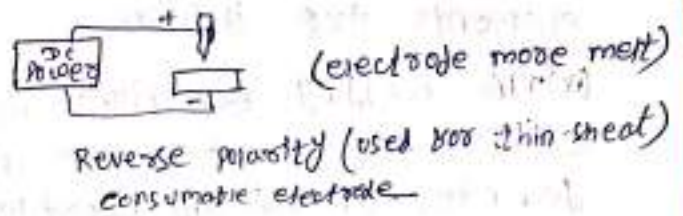 +
DC
Power
-
(electrode more melt)
Reverse polarity (used for thin sheat)
consumable electrode